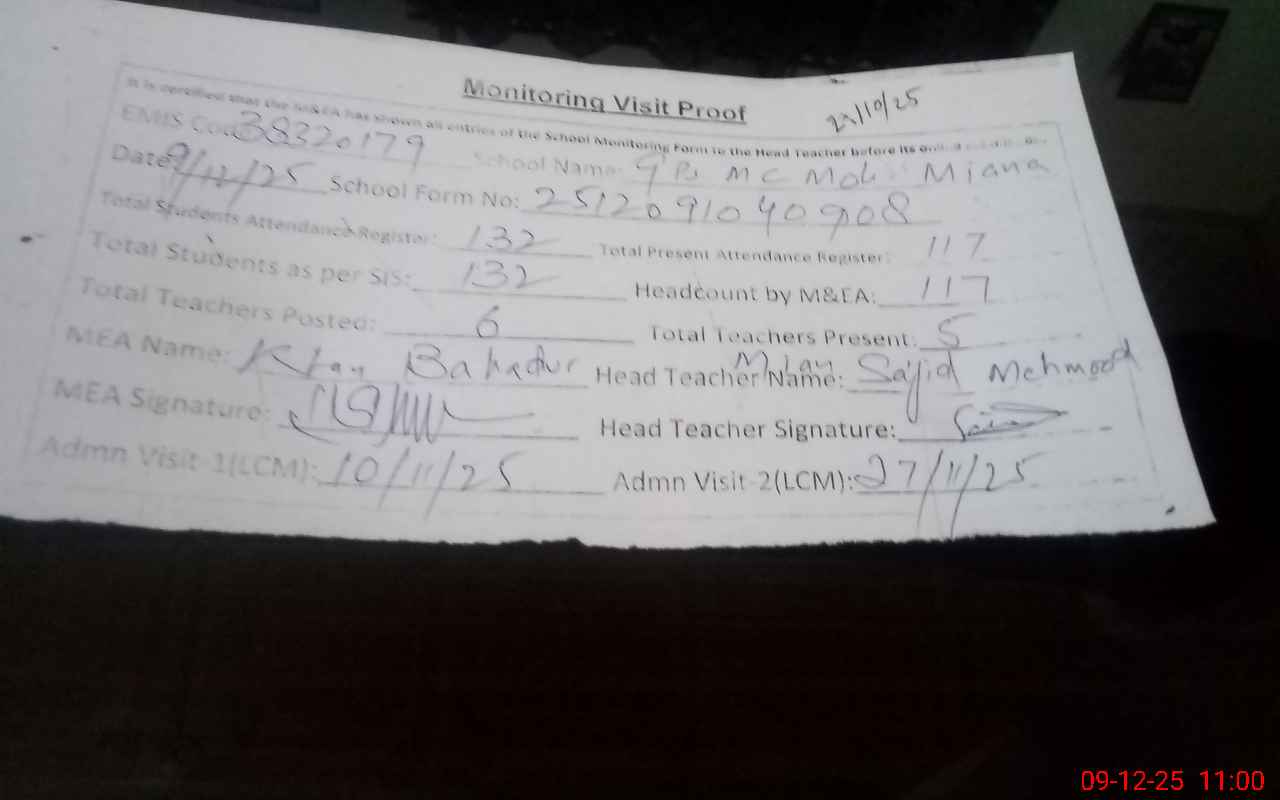 Monitoring Visit Proof
22/10/25
It is certified that the M&EA has shown all entries of the School Monitoring Form to the Head Teacher before its
EMIS Code 38320179 School Name: GPS MC Moh: Miana
Date: 9/12/25 School Form No: 251209104 0908
Total Students Attendance Register: 132 Total Present Attendance Register: 117
Total Students as per SIS: 132 Headcount by M&EA: 117
Total Teachers Posted: 6 Total Teachers Present: 5
MEA Name: Khan Bahadur Head Teacher Name: Mian Sajid Mehmood
MEA Signature: Head Teacher Signature:
Admn Visit-1(LCM): 10/11/25 Admn Visit-2(LCM): 27/11/25
09-12-25 11:00